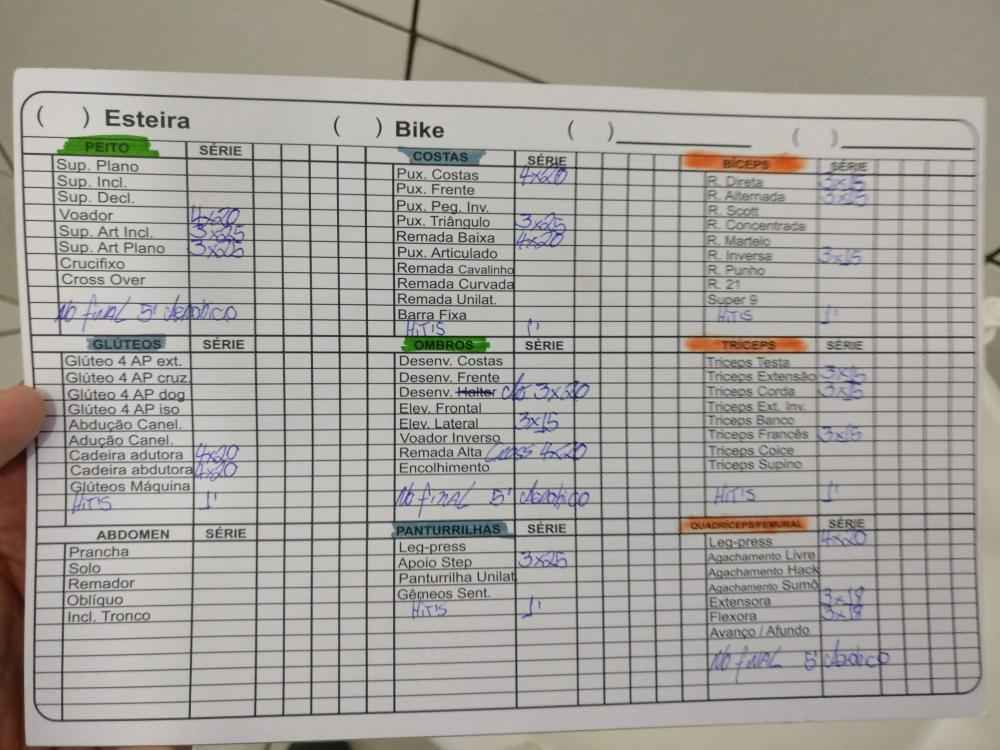 ( ) Esteira ( ) Bike ( ) ( )
PEITO SÉRIE
Sup. Plano
Sup. Incl.
Sup. Decl.
Voador 4x20
Sup. Art Incl. 3x25
Sup. Art Plano 3x25
Crucifixo
Cross Over
No final 5'
COSTAS SÉRIE
Pux. Costas 4x20
Pux. Frente
Pux. Peg. Inv.
Pux. Triângulo 3x25
Remada Baixa 4x20
Pux. Articulado
Remada Cavalinho
Remada Curvada
Remada Unilat.
Barra Fixa
HiTiS 1'
BÍCEPS SÉRIE
R. Direta 3x15
R. Alternada 3x15
R. Scott
R. Concentrada
R. Martelo
R. Inversa 3x15
R. Punho
R. 21
Super 9
HiTiS 1'
GLÚTEOS SÉRIE
Glúteo 4 AP ext.
Glúteo 4 AP cruz.
Glúteo 4 AP dog
Glúteo 4 AP iso
Abdução Canel.
Adução Canel.
Cadeira adutora 4x20
Cadeira abdutora 4x20
Glúteos Máquina
HiTiS 1'
OMBROS SÉRIE
Desenv. Costas
Desenv. Frente
Desenv. Halter 3x20
Elev. Frontal
Elev. Lateral 3x15
Voador Inverso
Remada Alta Cross 4x20
Encolhimento
No final 5'
TRÍCEPS SÉRIE
Triceps Testa
Triceps Extensão 3x15
Triceps Corda 3x15
Triceps Ext. Inv.
Triceps Banco
Triceps Francês 3x15
Triceps Coice
Triceps Supino
HiTiS 1'
ABDOMEN SÉRIE
Prancha
Solo
Remador
Oblíquo
Incl. Tronco
PANTURRILHAS SÉRIE
Leg-press
Apoio Step 3x25
Panturrilha Unilat
Gêmeos Sent.
HiTiS 1'
QUADRICEPS/FEMURAL SÉRIE
Leg-press 4x20
Agachamento Livre
Agachamento Hack
Agachamento Sumô
Extensora 3x18
Flexora 3x18
Avanço / Afundo
No final 5'